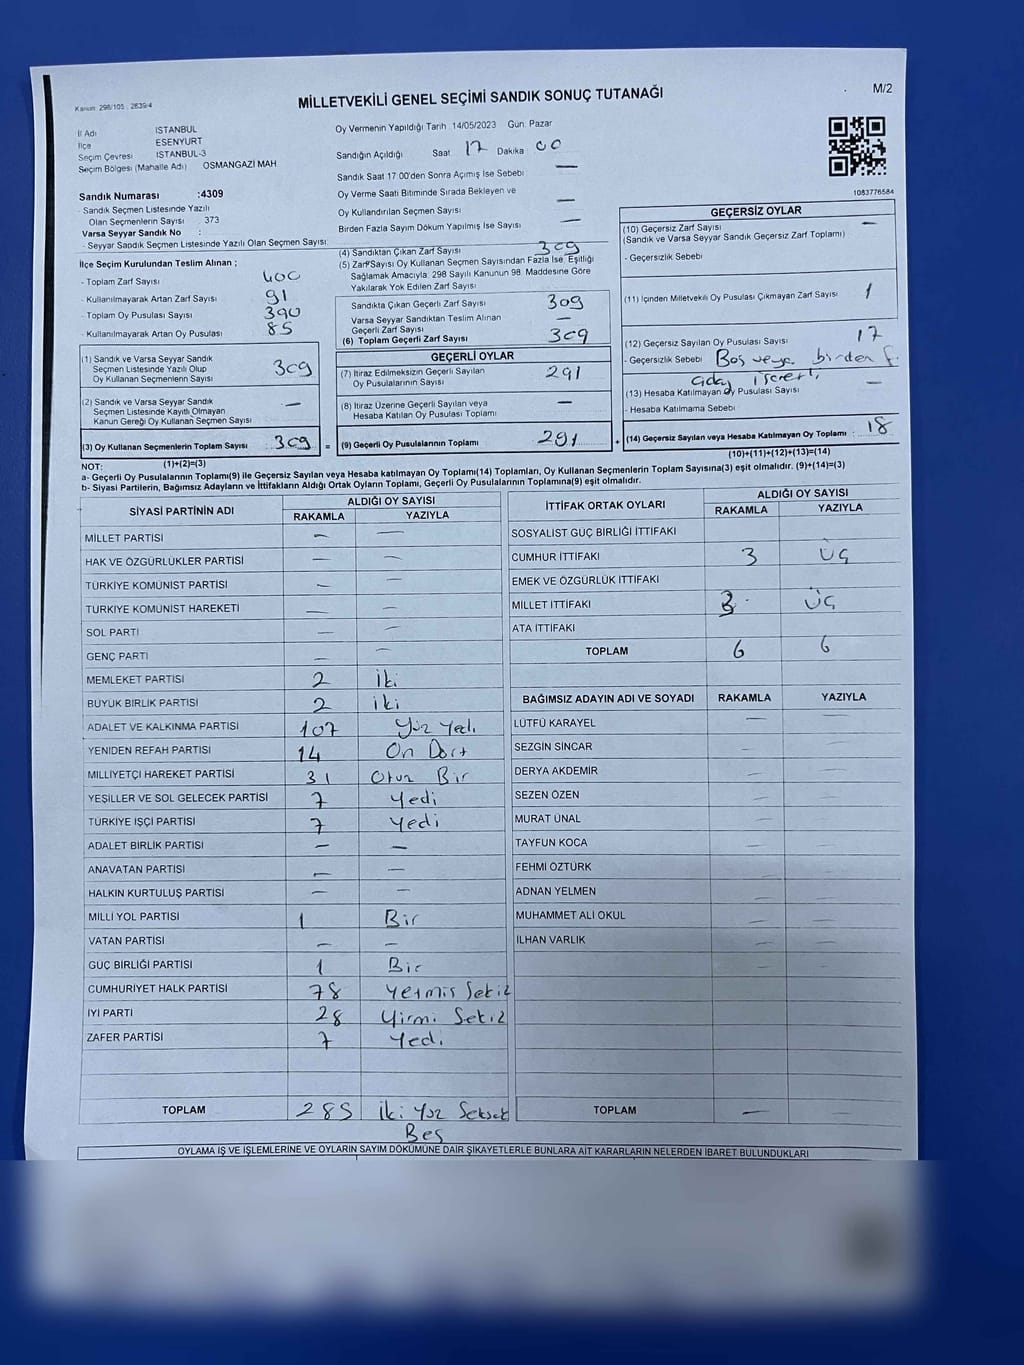 Kanun: 298/105 : 2839/4
MİLLETVEKİLİ GENEL SEÇİMİ SANDIK SONUÇ TUTANAĞI
M/2
İl Adı İSTANBUL
İlçe ESENYURT
Seçim Çevresi İSTANBUL-3
Seçim Bölgesi (Mahalle Adı) OSMANGAZİ MAH
Sandık Numarası :4309
- Sandık Seçmen Listesinde Yazılı
Olan Seçmenlerin Sayısı 373
Varsa Seyyar Sandık No :
- Seyyar Sandık Seçmen Listesinde Yazılı Olan Seçmen Sayısı:
İlçe Seçim Kurulundan Teslim Alınan ;
- Toplam Zarf Sayısı 400
- Kullanılmayarak Artan Zarf Sayısı 91
- Toplam Oy Pusulası Sayısı 390
- Kullanılmayarak Artan Oy Pusulası 85
(1) Sandık ve Varsa Seyyar Sandık
Seçmen Listesinde Yazılı Olup
Oy Kullanan Seçmenlerin Sayısı 309
(2) Sandık ve Varsa Seyyar Sandık
Seçmen Listesinde Kayıtlı Olmayan
Kanun Gereği Oy Kullanan Seçmen Sayısı —
(3) Oy Kullanan Seçmenlerin Toplam Sayısı 309 =
(1)+(2)=(3)
Oy Vermenin Yapıldığı Tarih 14/05/2023 Gün: Pazar
Sandığın Açıldığı Saat 17 Dakika 00
Sandık Saat 17 00'den Sonra Açımış İse Sebebi —
Oy Verme Saati Bitiminde Sırada Bekleyen ve
Oy Kullandırılan Seçmen Sayısı —
Birden Fazla Sayım Döküm Yapılmış İse Sayısı —
(4) Sandıktan Çıkan Zarf Sayısı 309
(5) Zarf Sayısı Oy Kullanan Seçmen Sayısından Fazla İse Eşitliği
Sağlamak Amacıyla 298 Sayılı Kanunun 98. Maddesine Göre
Yakılarak Yok Edilen Zarf Sayısı
Sandıkta Çıkan Geçerli Zarf Sayısı 309
Varsa Seyyar Sandıktan Teslim Alınan
Geçerli Zarf Sayısı —
(6) Toplam Geçerli Zarf Sayısı 309
GEÇERLİ OYLAR
(7) İtiraz Edilmeksizin Geçerli Sayılan
Oy Pusulalarının Sayısı 291
(8) İtiraz Üzerine Geçerli Sayılan veya
Hesaba Katılan Oy Pusulası Toplamı —
(9) Geçerli Oy Pusulalarının Toplamı 291 +
1083776584
GEÇERSİZ OYLAR
(10) Geçersiz Zarf Sayısı —
(Sandık ve Varsa Seyyar Sandık Geçersiz Zarf Toplamı)
- Geçersizlik Sebebi
(11) İçinden Milletvekili Oy Pusulası Çıkmayan Zarf Sayısı 1
(12) Geçersiz Sayılan Oy Pusulası Sayısı 17
- Geçersizlik Sebebi Boş veya birden f.
aday
(13) Hesaba Katılmayan Oy Pusulası Sayısı —
- Hesaba Katılmama Sebebi
(14) Geçersiz Sayılan veya Hesaba Katılmayan Oy Toplamı : 18
(10)+(11)+(12)+(13)=(14)
NOT:
a- Geçerli Oy Pusulalarının Toplamı(9) ile Geçersiz Sayılan veya Hesaba katılmayan Oy Toplamı(14) Toplamları, Oy Kullanan Seçmenlerin Toplam Sayısına(3) eşit olmalıdır. (9)+(14)=(3)
b- Siyasi Partilerin, Bağımsız Adayların ve İttifakların Aldığı Ortak Oyların Toplamı, Geçerli Oy Pusulalarının Toplamına(9) eşit olmalıdır.
SİYASİ PARTİNİN ADI ALDIĞI OY SAYISI
RAKAMLA YAZIYLA
MİLLET PARTİSİ — —
HAK VE ÖZGÜRLÜKLER PARTİSİ — —
TÜRKİYE KOMÜNİST PARTİSİ — —
TÜRKİYE KOMÜNİST HAREKETİ — —
SOL PARTİ — —
GENÇ PARTİ — —
MEMLEKET PARTİSİ 2 İki
BÜYÜK BİRLİK PARTİSİ 2 İki
ADALET VE KALKINMA PARTİSİ 107 Yüz Yedi
YENİDEN REFAH PARTİSİ 14 On Dört
MİLLİYETÇİ HAREKET PARTİSİ 31 Otuz Bir
YEŞİLLER VE SOL GELECEK PARTİSİ 7 Yedi
TÜRKİYE İŞÇİ PARTİSİ 7 Yedi
ADALET BİRLİK PARTİSİ — —
ANAVATAN PARTİSİ — —
HALKIN KURTULUŞ PARTİSİ — —
MİLLİ YOL PARTİSİ 1 Bir
VATAN PARTİSİ — —
GÜÇ BİRLİĞİ PARTİSİ 1 Bir
CUMHURİYET HALK PARTİSİ 78 Yetmiş Sekiz
İYİ PARTİ 28 Yirmi Sekiz
ZAFER PARTİSİ 7 Yedi
TOPLAM 285 İki Yüz Seksen
Beş
İTTİFAK ORTAK OYLARI ALDIĞI OY SAYISI
RAKAMLA YAZIYLA
SOSYALİST GÜÇ BİRLİĞİ İTTİFAKI
CUMHUR İTTİFAKI 3 Üç
EMEK VE ÖZGÜRLÜK İTTİFAKI
MİLLET İTTİFAKI 3 Üç
ATA İTTİFAKI
TOPLAM 6 6
BAĞIMSIZ ADAYIN ADI VE SOYADI RAKAMLA YAZIYLA
LÜTFÜ KARAYEL — —
SEZGİN SİNCAR — —
DERYA AKDEMİR — —
SEZEN ÖZEN — —
MURAT ÜNAL — —
TAYFUN KOCA — —
FEHMİ ÖZTÜRK — —
ADNAN YELMEN — —
MUHAMMET ALİ OKUL — —
İLHAN VARLIK — —
TOPLAM —
OYLAMA İŞ VE İŞLEMLERİNE VE OYLARIN SAYIM DÖKÜMÜNE DAİR ŞİKAYETLERLE BUNLARA AİT KARARLARIN NELERDEN İBARET BULUNDUKLARI